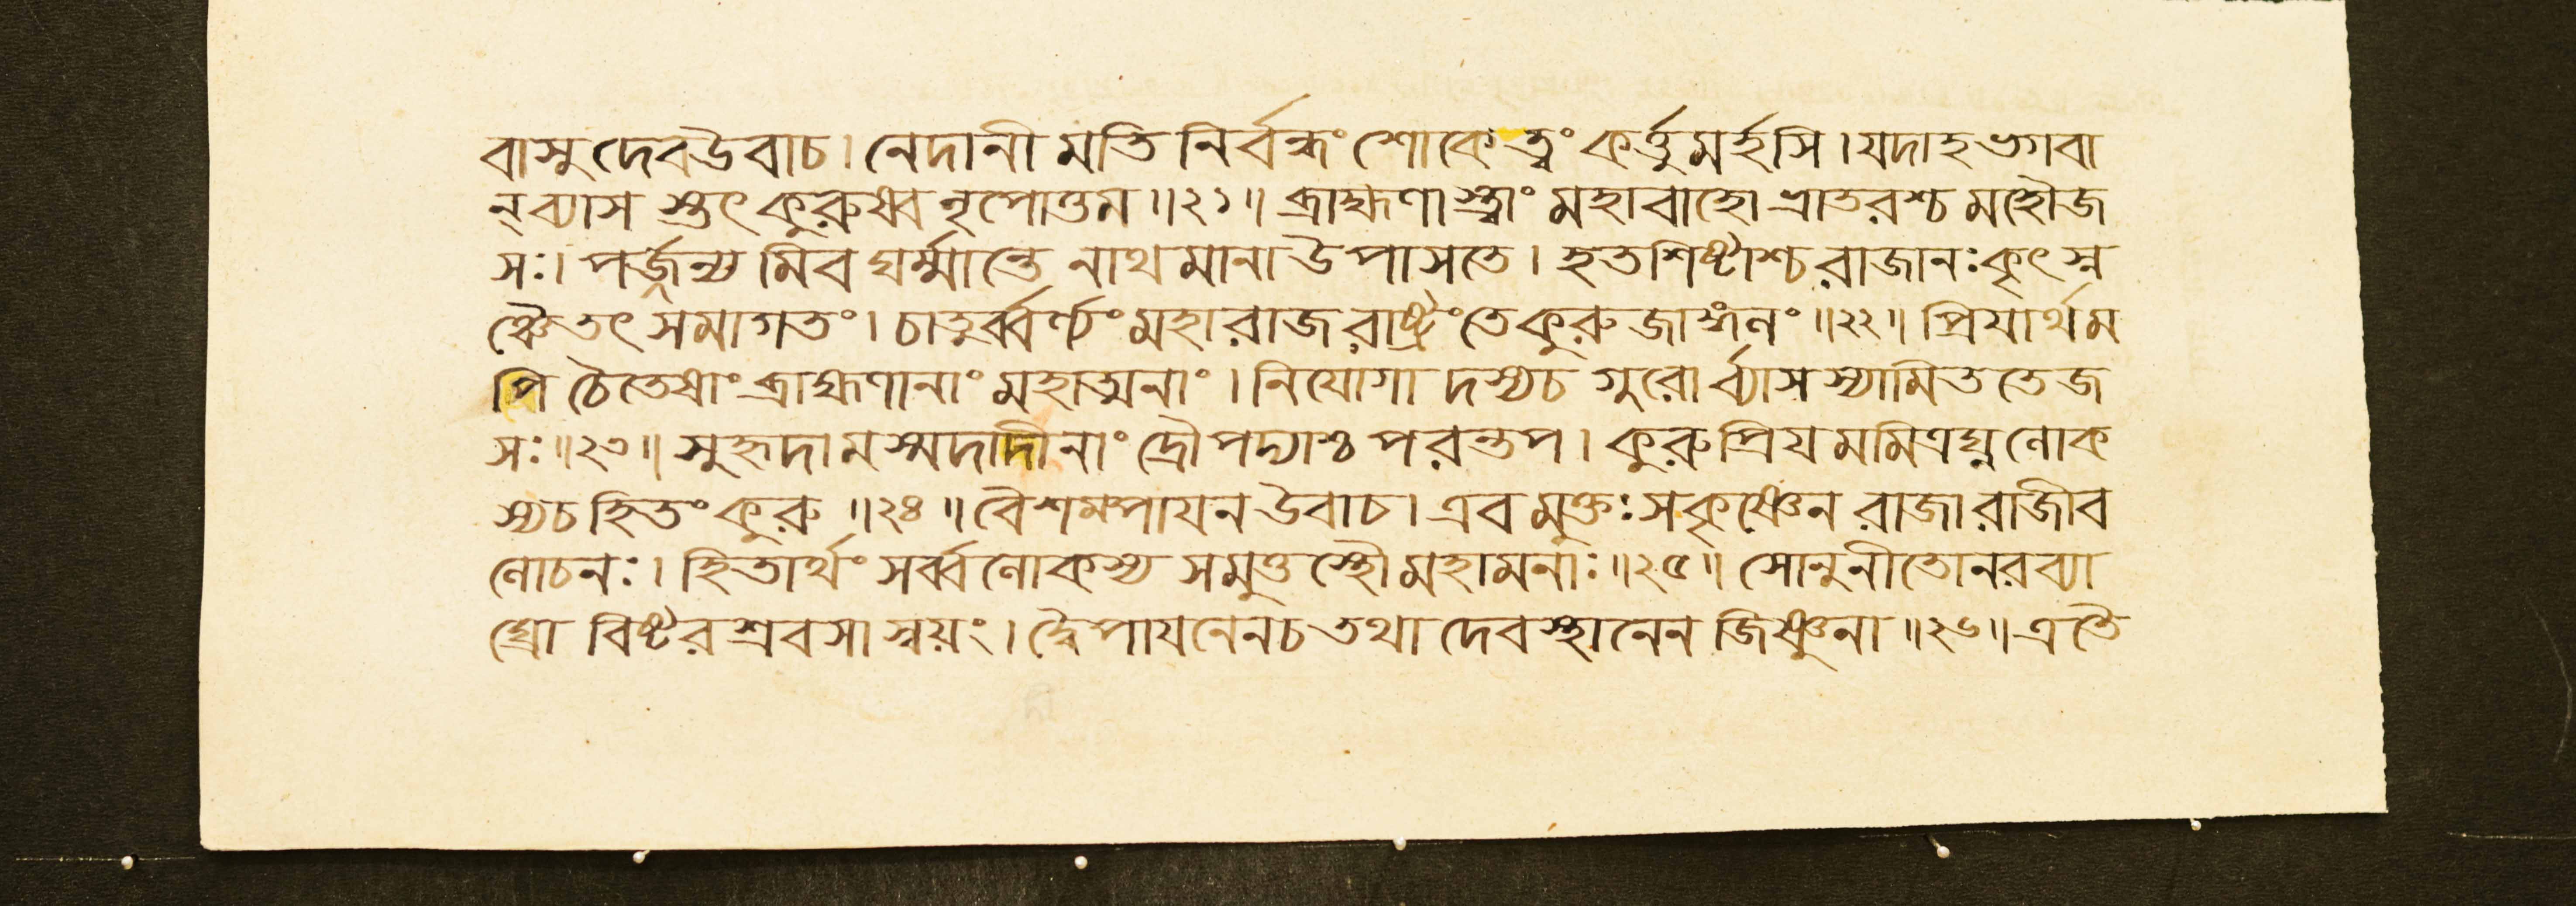 বাসুদেবউবাচ। নেদানীমতিনির্বন্ধং শোকেত্বং কর্ত্তুমর্হসি। যদাহ ভগবা
ন্ ব্যাস স্তৎ কুরুষ্ব নৃপোত্তম॥২১॥ ব্রাহ্মণাস্ত্বাং মহাবাহো ভ্রাতরশ্চ মহৌজ
সঃ। পর্জ্জন্য মিব ঘর্ম্মান্তে নাথমানা উপাসতে। হতশিষ্টাশ্চ রাজানঃ কৃৎস্ন
ঞ্চৈতৎ সমাগতং। চাতুর্ব্বর্ণ্যং মহারাজ রাষ্ট্রং তে কুরুজাঙ্গলং॥২২॥ প্রিয়ার্থম
পি চৈতেষাং ব্রাহ্মণানাং মহাত্মনাং। নিযোগা দস্যচ গুরোর্ব্যাসস্যামিততেজ
সঃ॥২৩॥ সুহৃদামস্মদাদীনাং দ্রৌপদ্যাশ্চ পরন্তপ। কুরু প্রিয়মমিত্রঘ্ন লোক
স্যচ হিতং কুরু॥২৪॥ বৈশম্পায়ন উবাচ। এবমুক্তঃ সকৃষ্ণেন রাজা রাজীব
লোচনঃ। হিতার্থং সর্ব্বলোকস্য সমুত্তস্থৌ মহামনাঃ॥২৫॥ সোনুনীতোনরব্যা
ঘ্রো বিষ্টরশ্রবসা স্বয়ং। দ্বৈপায়নেনচ তথা দেবস্থানেন জিষ্ণুনা॥২৬॥ এতৈ